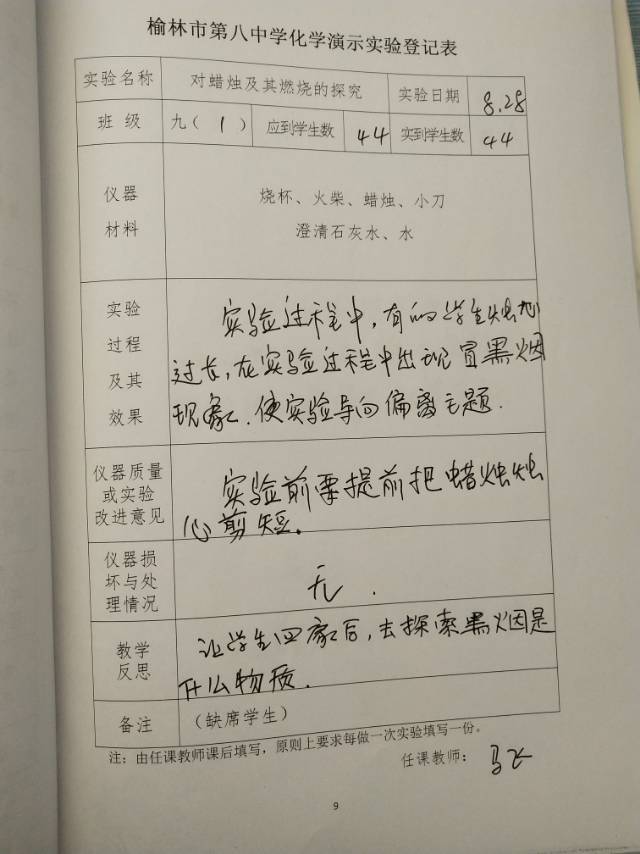 榆林市第八中学化学演示实验登记表
实验名称 对蜡烛及其燃烧的探究 实验日期 8.28
班 级 九（ 1 ） 应到学生数 44 实到学生数 44
仪器
材料
烧杯、火柴、蜡烛、小刀
澄清石灰水、水
实验
过程
及其
效果
实验过程中，有的学生烛芯
过长，在实验过程中出现冒黑烟
现象．使实验导向偏离主题．
仪器质量
或实验
改进意见
实验前要提前把蜡烛烛
心剪短．
仪器损
坏与处
理情况
无．
教学
反思
让学生回家后，去探索黑烟是
什么物质．
备注 （缺席学生）
注：由任课教师课后填写，原则上要求每做一次实验填写一份。
任课教师： 马飞
9